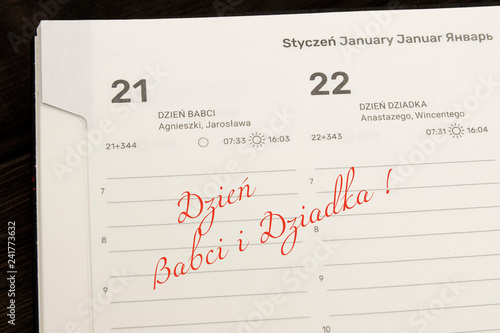 Styczeń January Januar Январь
21
DZIEŃ BABCI
Agnieszki, Jarosława
21+344
07:33 16:03
22
DZIEŃ DZIADKA
Anastazego, Wincentego
22+343
07:31 16:04
7
8
9
10
7
8
9
10
Dzień
Babci i Dziadka !
Adobe Stock | #241773632